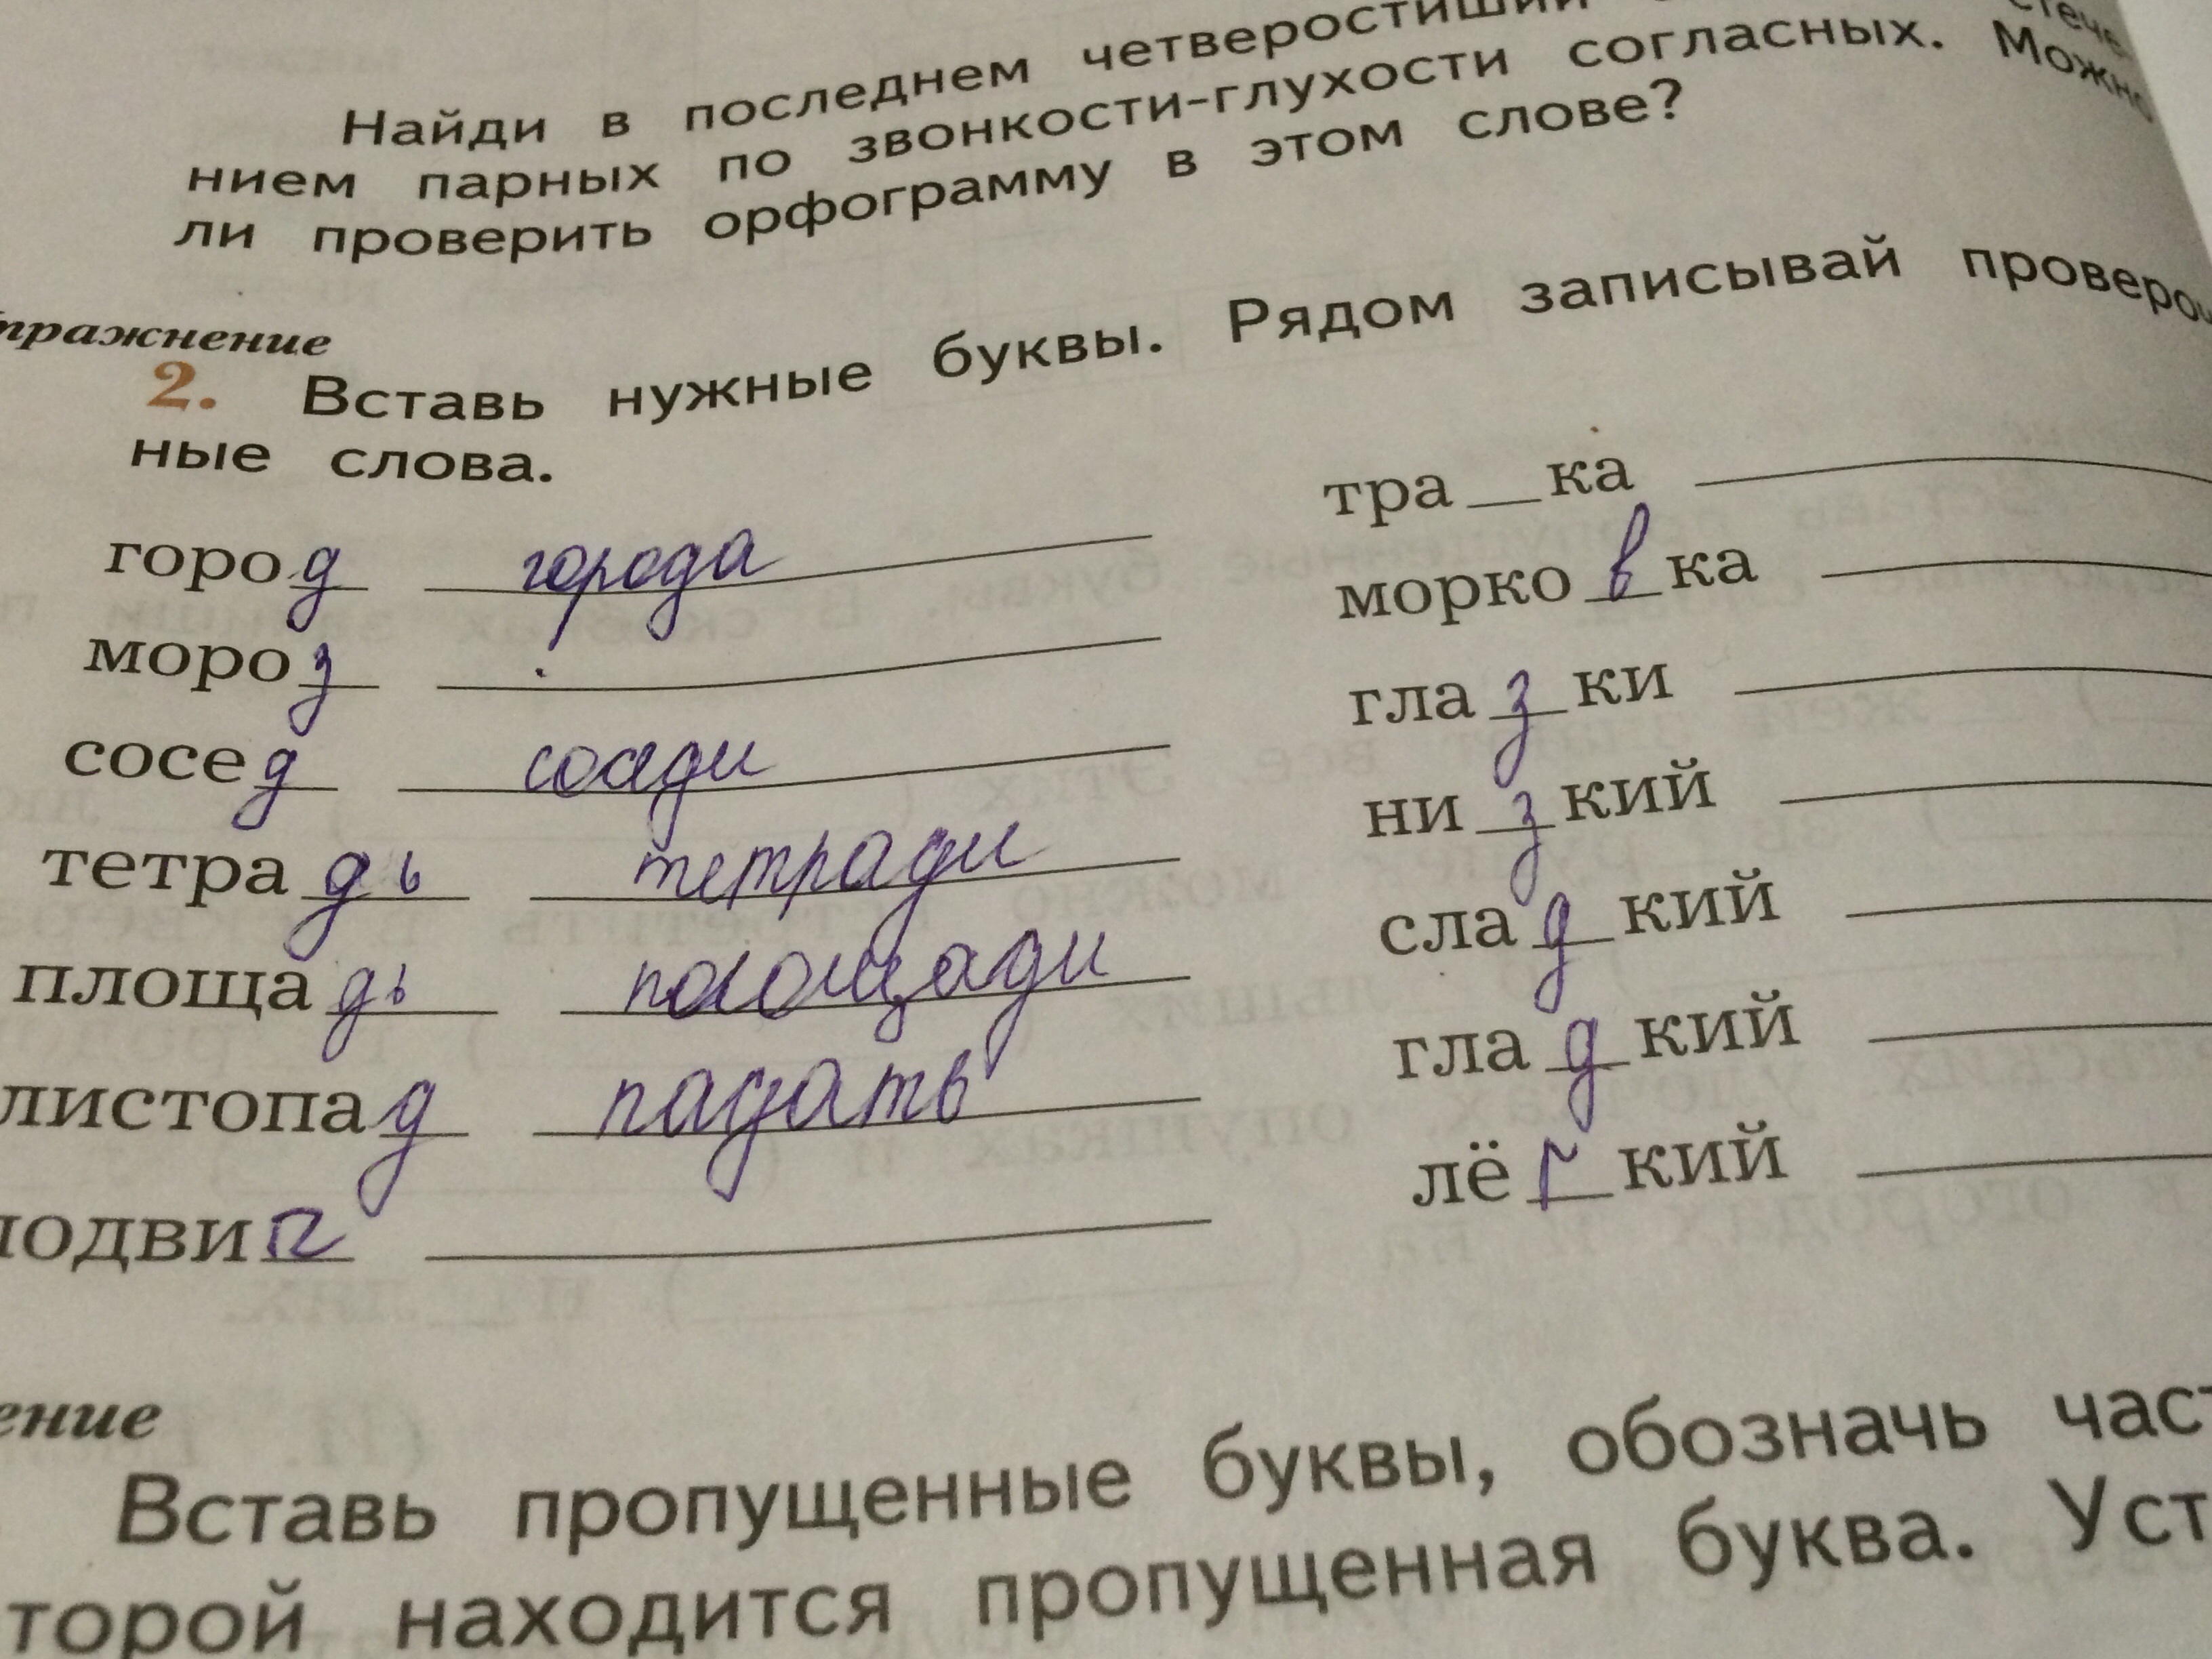 Найди в последнем четверостишии
нием парных по звонкости-глухости согласных. Можно
ли проверить орфограмму в этом слове?
Упражнение
2. Вставь нужные буквы. Рядом записывай провероч
ные слова.
город города
мороз
сосед соседи
тетрадь тетради
площадь площади
листопад падать
подвиг
тра__ка
морковка
глазки
низкий
сладкий
гладкий
лёгкий
ение
Вставь пропущенные буквы, обозначь част
торой находится пропущенная буква. Уст